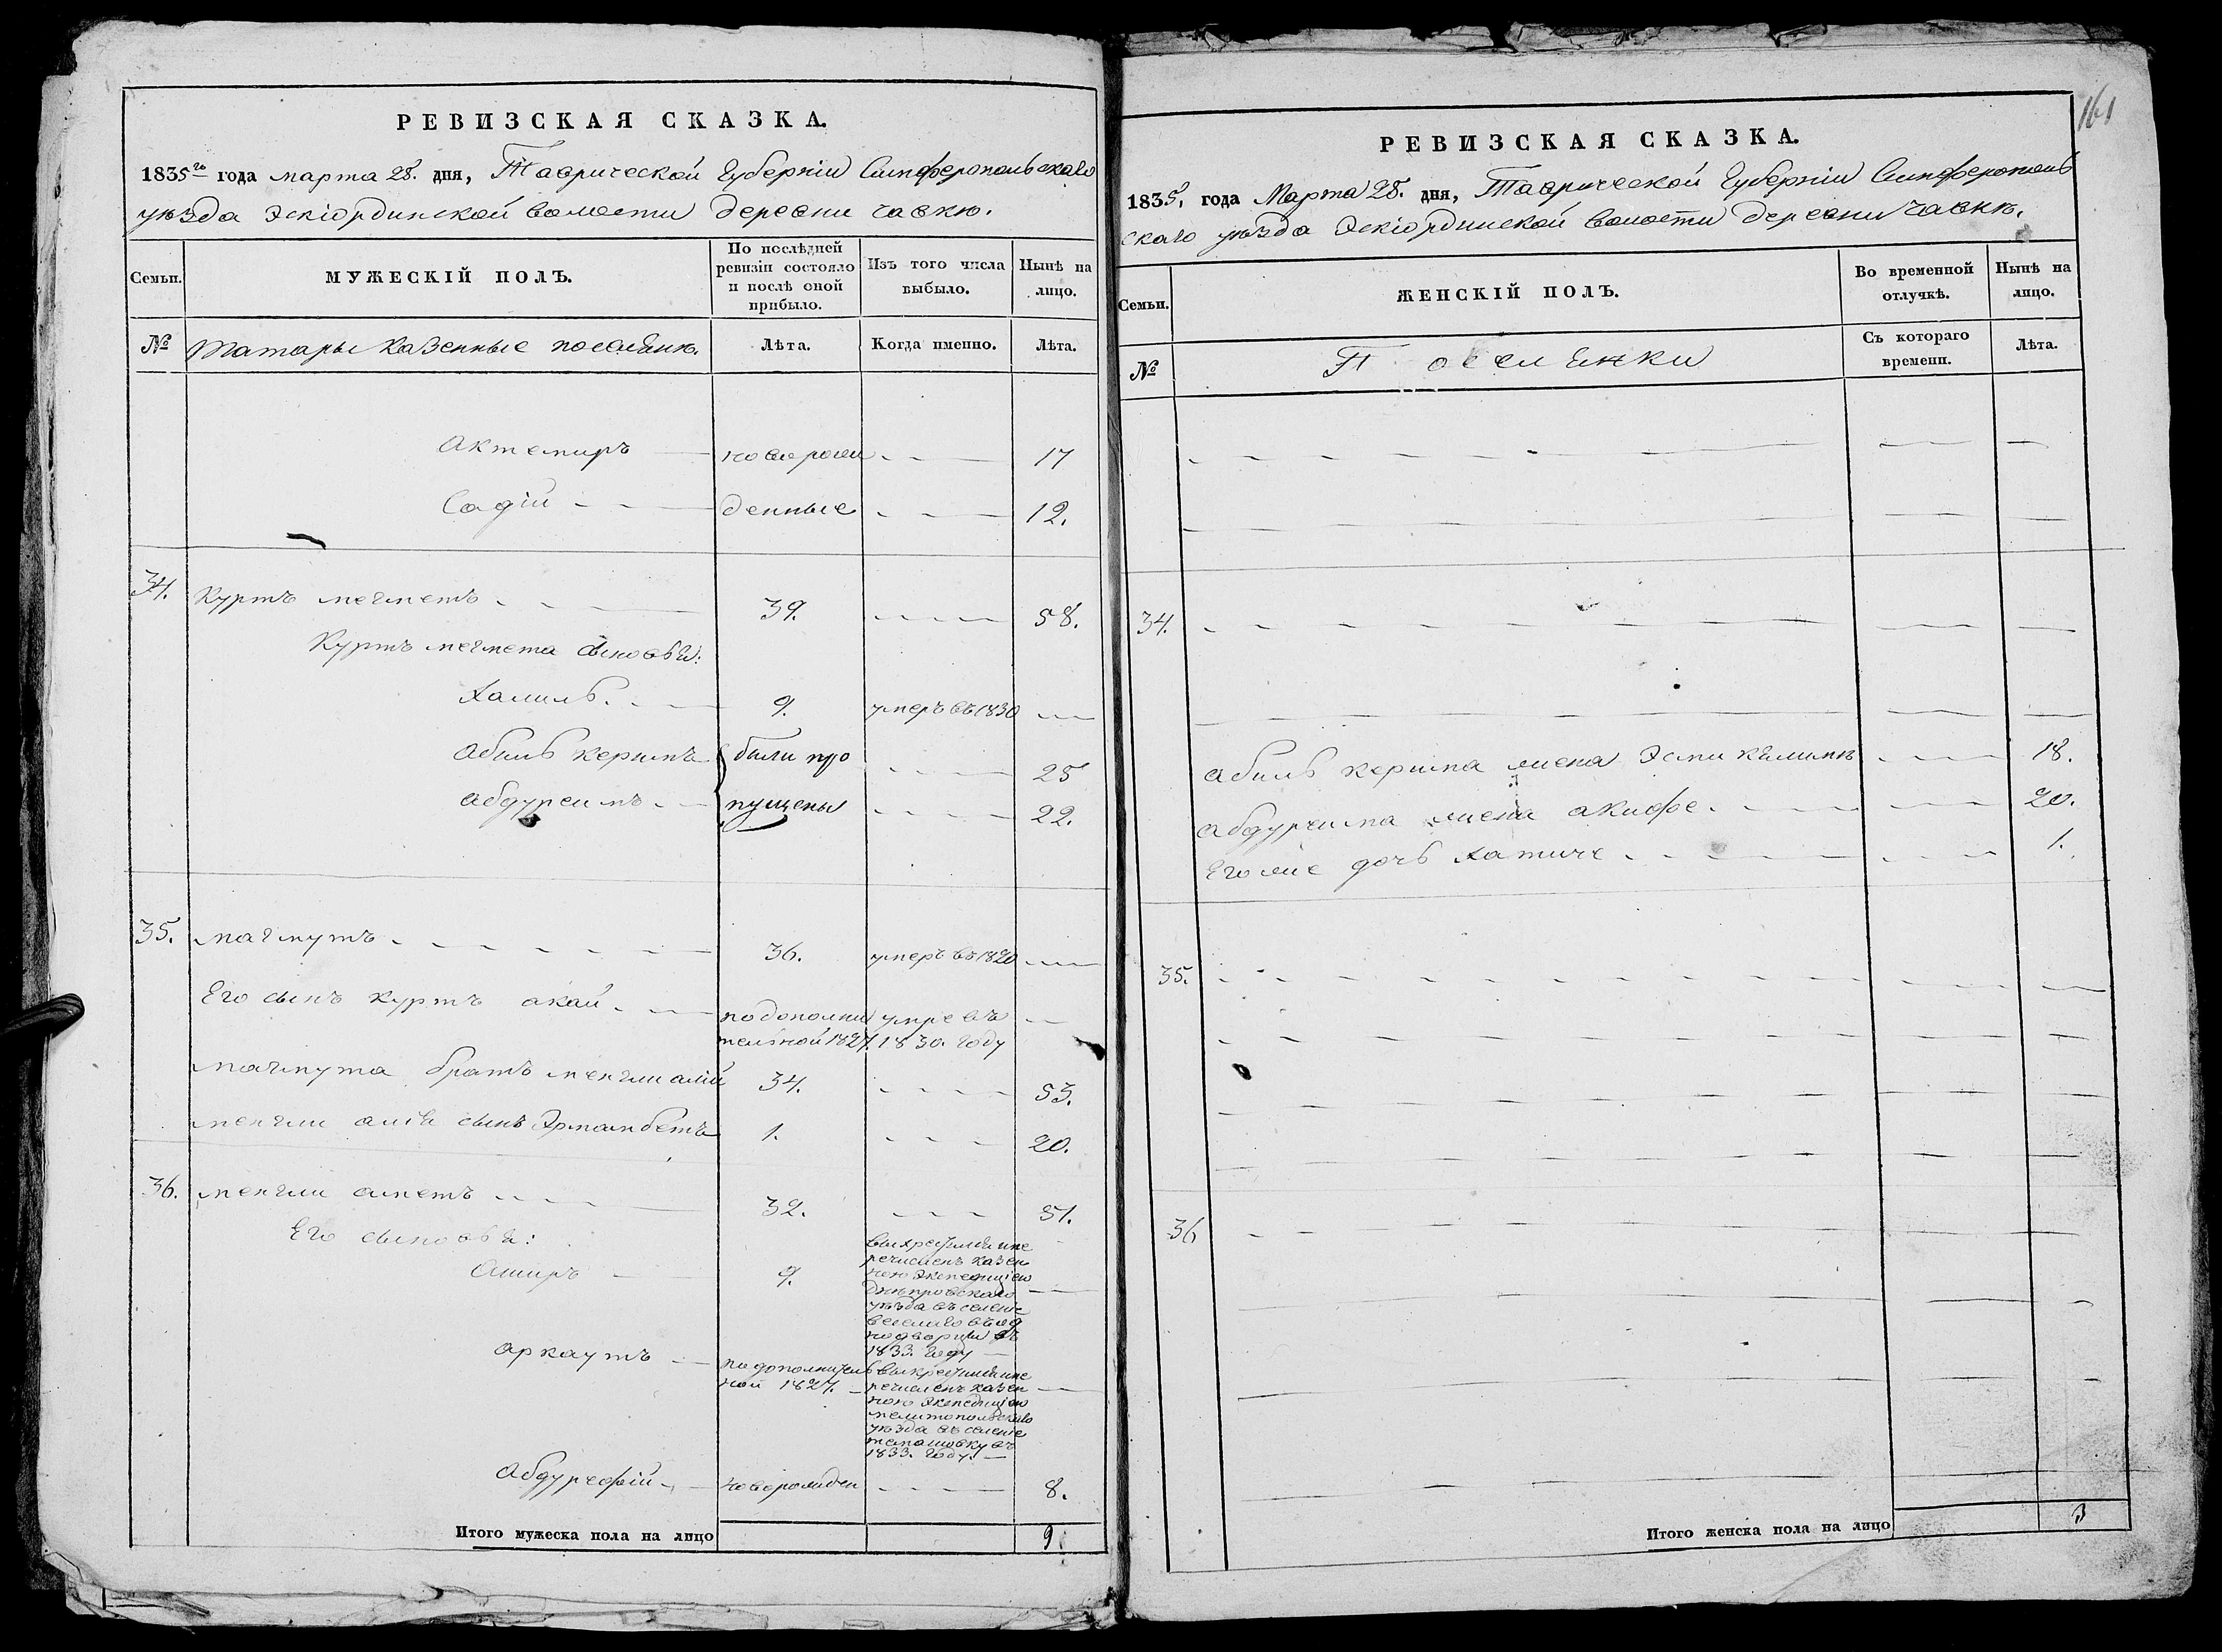 РЕВИЗСКАЯ СКАЗКА.
1835го года марта 28. дня, Таврической Губерніи Симферопольскаго
уѣзда Эскіординской волости деревни Чавкѣ.
Семьи.
МУЖЕСКІЙ ПОЛЪ.
По послѣдней
ревизіи состояло
и послѣ оной
прибыло.
Изъ того числа
выбыло.
Нынѣ на
лицо.
№ Татары казенные поселяне.
Лѣта.
Когда именно.
Лѣта.
Актемиръ новорож 17
Садій денные 12.
34. Куртъ мегметъ 39. 58.
Куртъ мегмета сыновья:
Халиль. 9. умеръ въ 1830
Абиль керимъ были про 25
Абдуреимъ пущены 22.
35. Магмутъ 36. умеръ въ 1820
Его сынъ куртъ акай по дополни умре въ
тельной 1827. 1830. году
Магмута братъ менгли алій 34. 53.
Менгли алія сынъ Эрмамбетъ 1. 20.
36. Менгли аметъ 32. 51.
Его сыновья:
Аширъ 9.
выкрестился и пе
речисленъ казен
ною экспедиціею
Днѣпровскаго
уѣзда въ селеніе
веселаго въ од
нодворцы въ
1833. году
Аркаутъ по дополнитель
ной 1827.
выкрестился и пе
речисленъ казен
ною экспедиціею
мелитопольскаго
уѣзда въ селеніе
въ
1833. году.
Абдурефій новорожден 8.
Итого мужеска пола на лицо 9.
161
РЕВИЗСКАЯ СКАЗКА.
1835. года Марта 28. дня, Таврической Губерніи Симферополь
скаго уѣзда Эскіординской волости деревни Чавкѣ.
Семьи.
ЖЕНСКІЙ ПОЛЪ.
Во временной
отлучкѣ.
Нынѣ на
лицо.
№ Поселянки
Съ котораго
времени.
Лѣта.
34.
Абиль керима жена Эсми 18.
Абдуреима жена акифе. 20.
Его же дочь хатиче 1.
35.
36
Итого женска пола на лицо 3